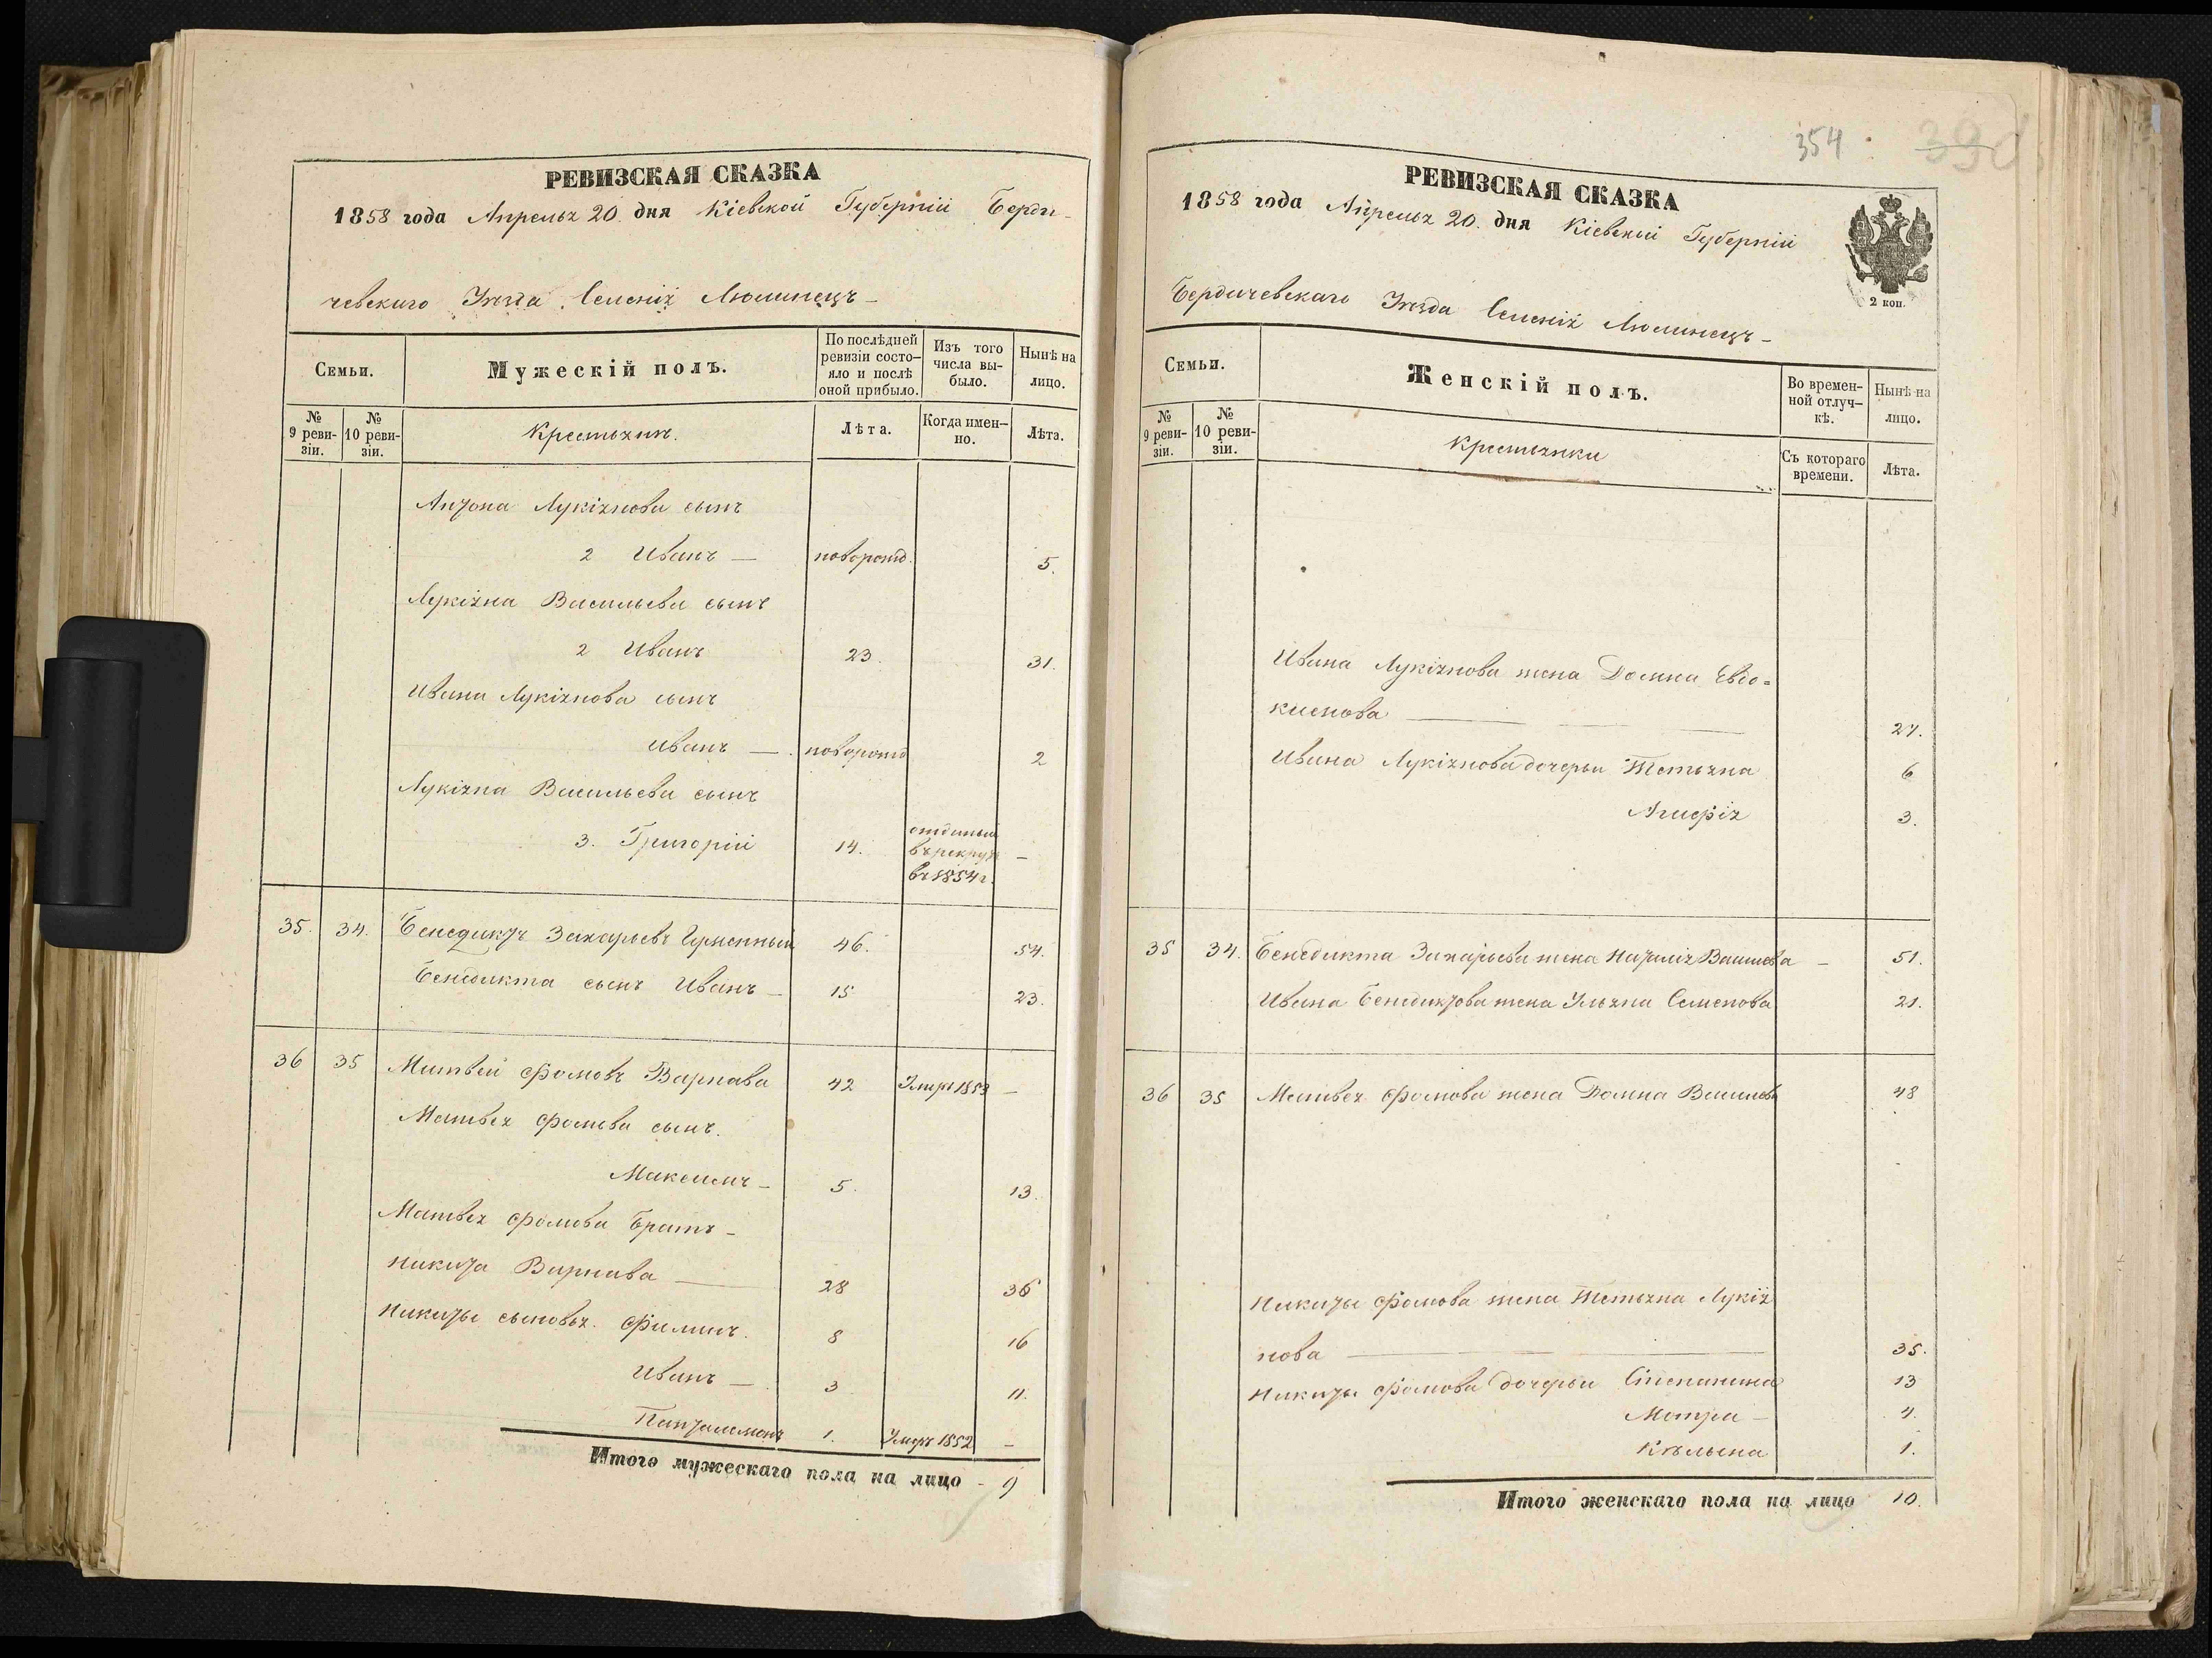 РЕВИЗСКАЯ СКАЗКА
1858 года Апреля 20. дня Кіевской Губерніи Берди-
чевскаго Уезда Селенія Люлинецъ -
Семьи.
Мужескій полъ.
По послѣдней ревизіи состо-
яло и послѣ оной прибыло.
Изъ того числа вы-
было.
Нынѣ на лицо.
№ 9 реви-
зіи.
№ 10 реви-
зіи.
Крестьяне.
Лѣта.
Когда имен-
но.
Лѣта.
Антона Лукіянова сынъ
2 Иванъ — новорожд. 5.
Лукіяна Васильева сынъ
2 Иванъ 23. 31.
Ивана Лукіянова сынъ
Иванъ — новорожд 2
Лукіяна Васильева сынъ
3. Григорій 14. отданъ -
въ рекрут
въ 1854 г.
35. 34. Бенедиктъ Захарьевъ 46. 54.
Бенедикта сынъ Иванъ — 15 23.
36 35 Матвей Фомовъ Варнава 42 Умеръ 1853 —
Матвея Фомова сынъ.
Максимъ - 5. 13.
Матвея Фомова братъ -
Никита Варнава — 28 36
Никиты сыновья. Филипъ. 8 16
Иванъ — 3 11.
Панталемонъ 1. Умеръ 1852 —
Итого мужескаго пола на лицо - 9
354
390
РЕВИЗСКАЯ СКАЗКА
1858 года Апреля 20. дня Кіевской Губерніи
2 коп.
Бердичевскаго Уезда Селенія Люлинецъ -
Семьи.
Женскій полъ.
Во времен-
ной отлуч-
кѣ.
Нынѣ на лицо.
№ 9 реви-
зіи.
№ 10 реви-
зіи.
Крестьянки
Съ котораго времени.
Лѣта.
Ивана Лукіянова жена Домна Евдо=
кимова — 27.
Ивана Лукіянова дочери Татьяна 6
Агафія 3.
35 34. Бенедикта Захарьева жена Наталія Васильева — 51.
Ивана Бенедиктова жена Ульяна Семенова 21.
36 35 Матвея Фомова жена Домна Васильева 48
Никиты Фомова жена Татьяна Лукія
нова — 35.
Никиты Фомова дочери Степанида 13
Мотря — 4.
1.
Итого женскаго пола на лицо 10.